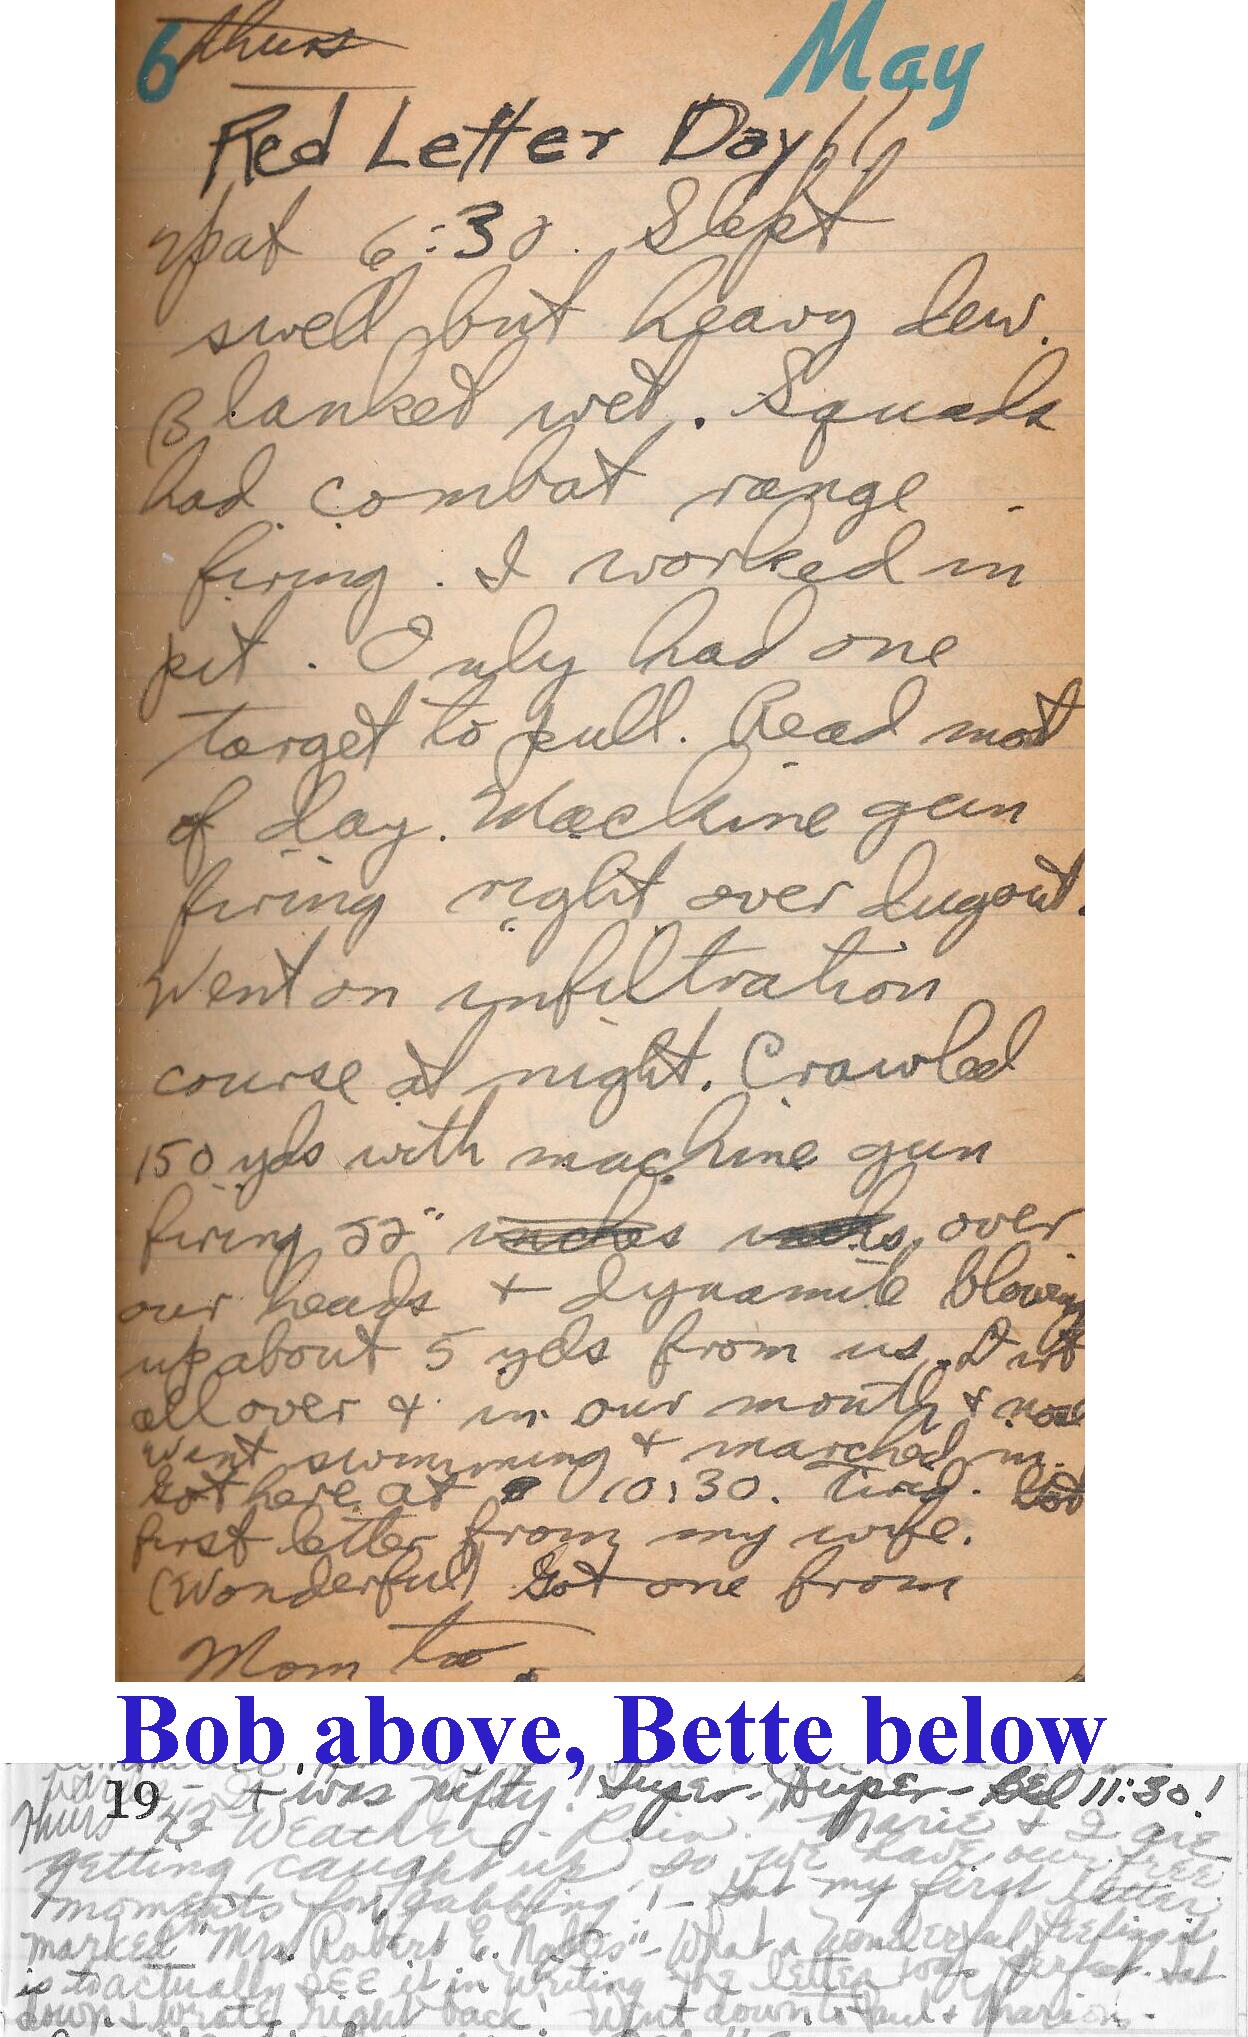 6 Thurs May
Red Letter Day!!
Up at 6:30. Slept
swell but heavy dew.
Blanket wet. Squads
had combat range
firing. I worked in
pit. Only had one
target to pull. Read most
of day. Machine gun
firing right over dugout.
Went on infiltration
course at night. Crawled
150 yds with machine gun
firing 22" inches over
our heads + dynamite blowing
up about 5 yds from us. Dirt
all over & in our mouth & nose
Went swimming + marched in.
Got here at 10:30. Tired. Got
first letter from my wife.
(Wonderful) Got one from
Mom too.
Bob above, Bette below
It was nifty! Super-Duper- Bed 11:30!
19
Thurs 43 Weather - Rain. Marie & I are
getting caught up so we have our free
moments for gabbing! - Got my first letter
marked "Mrs. Robert E. Nolles" - What a wonderful feeling it
is to actually SEE it in writing - The letter was perfect. Sat
down & wrote right back! Went down to Paul & Marion's -